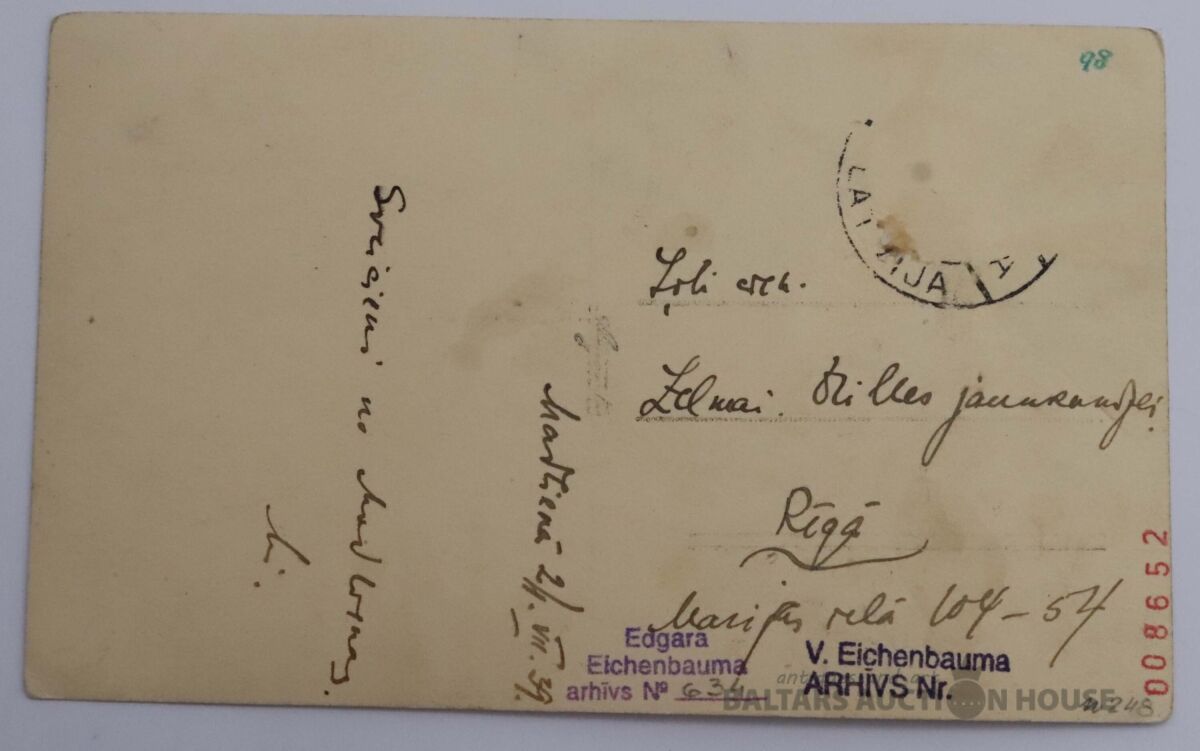 98
LATVIJA
Ļoti
Zelmai jaunkundzei
Rīgā
Marijas ielā 104-54
Madlienā 21. VII. 39.
Sveicieni no Madlienas.
Edgara
Eichenbauma
arhīvs №
V. Eichenbauma
ARHĪVS Nr.
008652
BALTARS AUCTION HOUSE